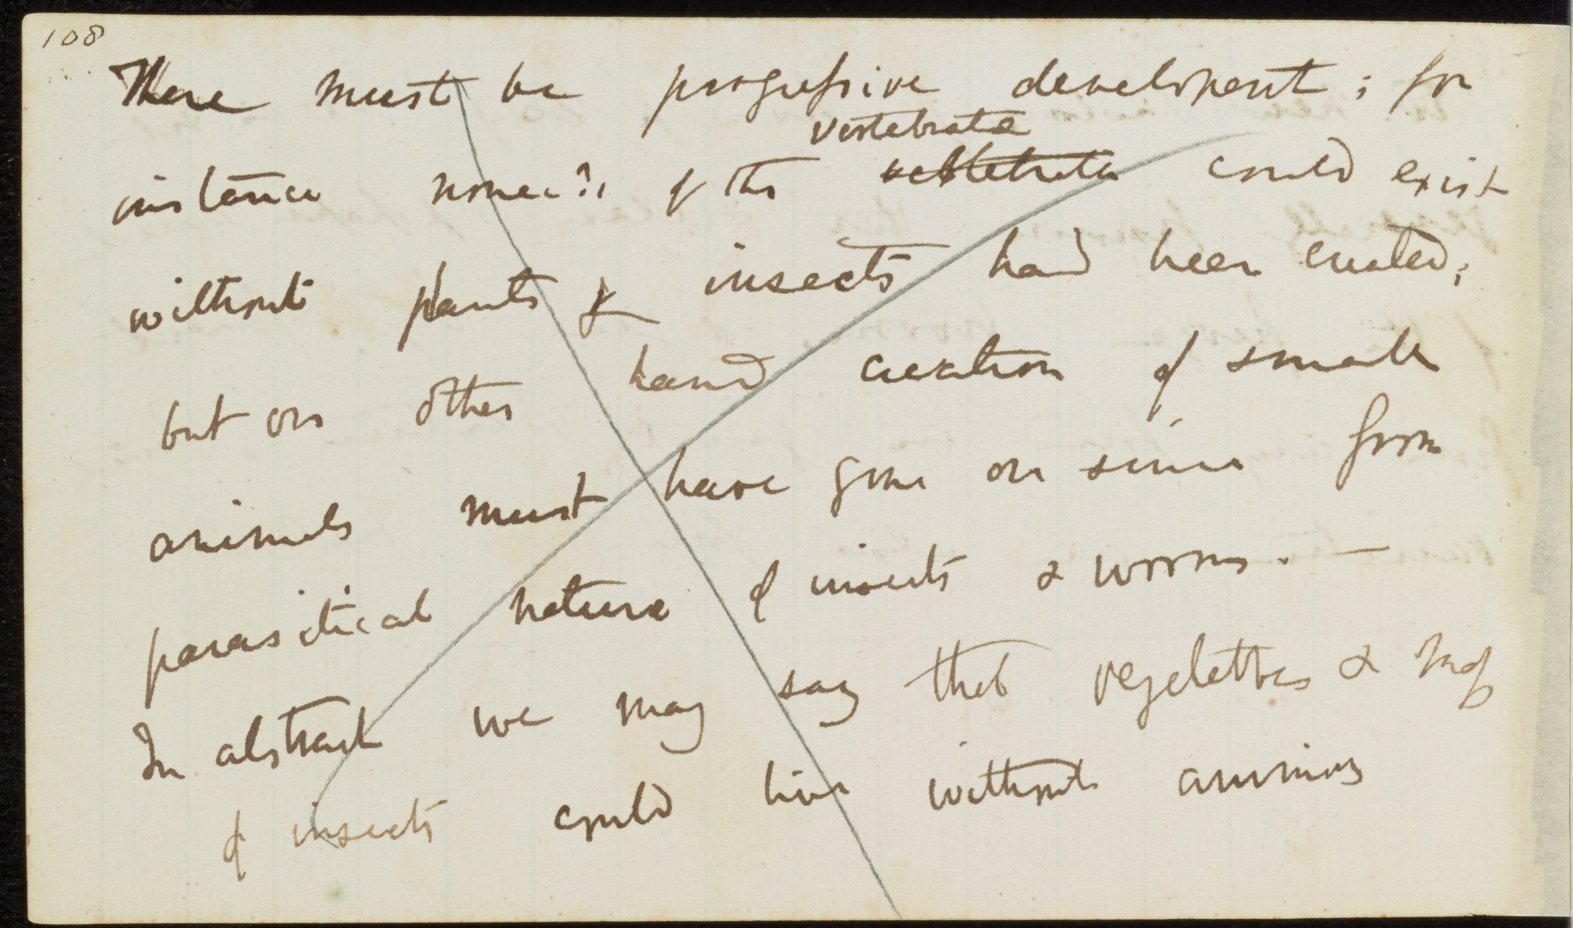 108
There must be progressive development; for
vertebrata
instance none?? of the vertebrata could exist
without plants & insects had been created;
but on other hand creation of small
animals must have gone on since from
parasitical nature of insects & worms. —
In abstract we may say that vegetables & mass
of insects could live without animals